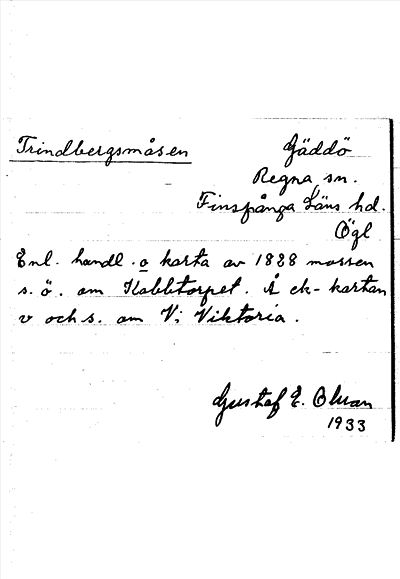 Trindbergsmåsen
Gäddö
Regna sn.
Finspånga Läns hd.
Ögl
Enl. handl. o karta av 1828 mossen
s. ö. om Kabbtorpet. Å ek-kartan
v och s. om V; Viktoria.
Gustaf E. Olman
1933